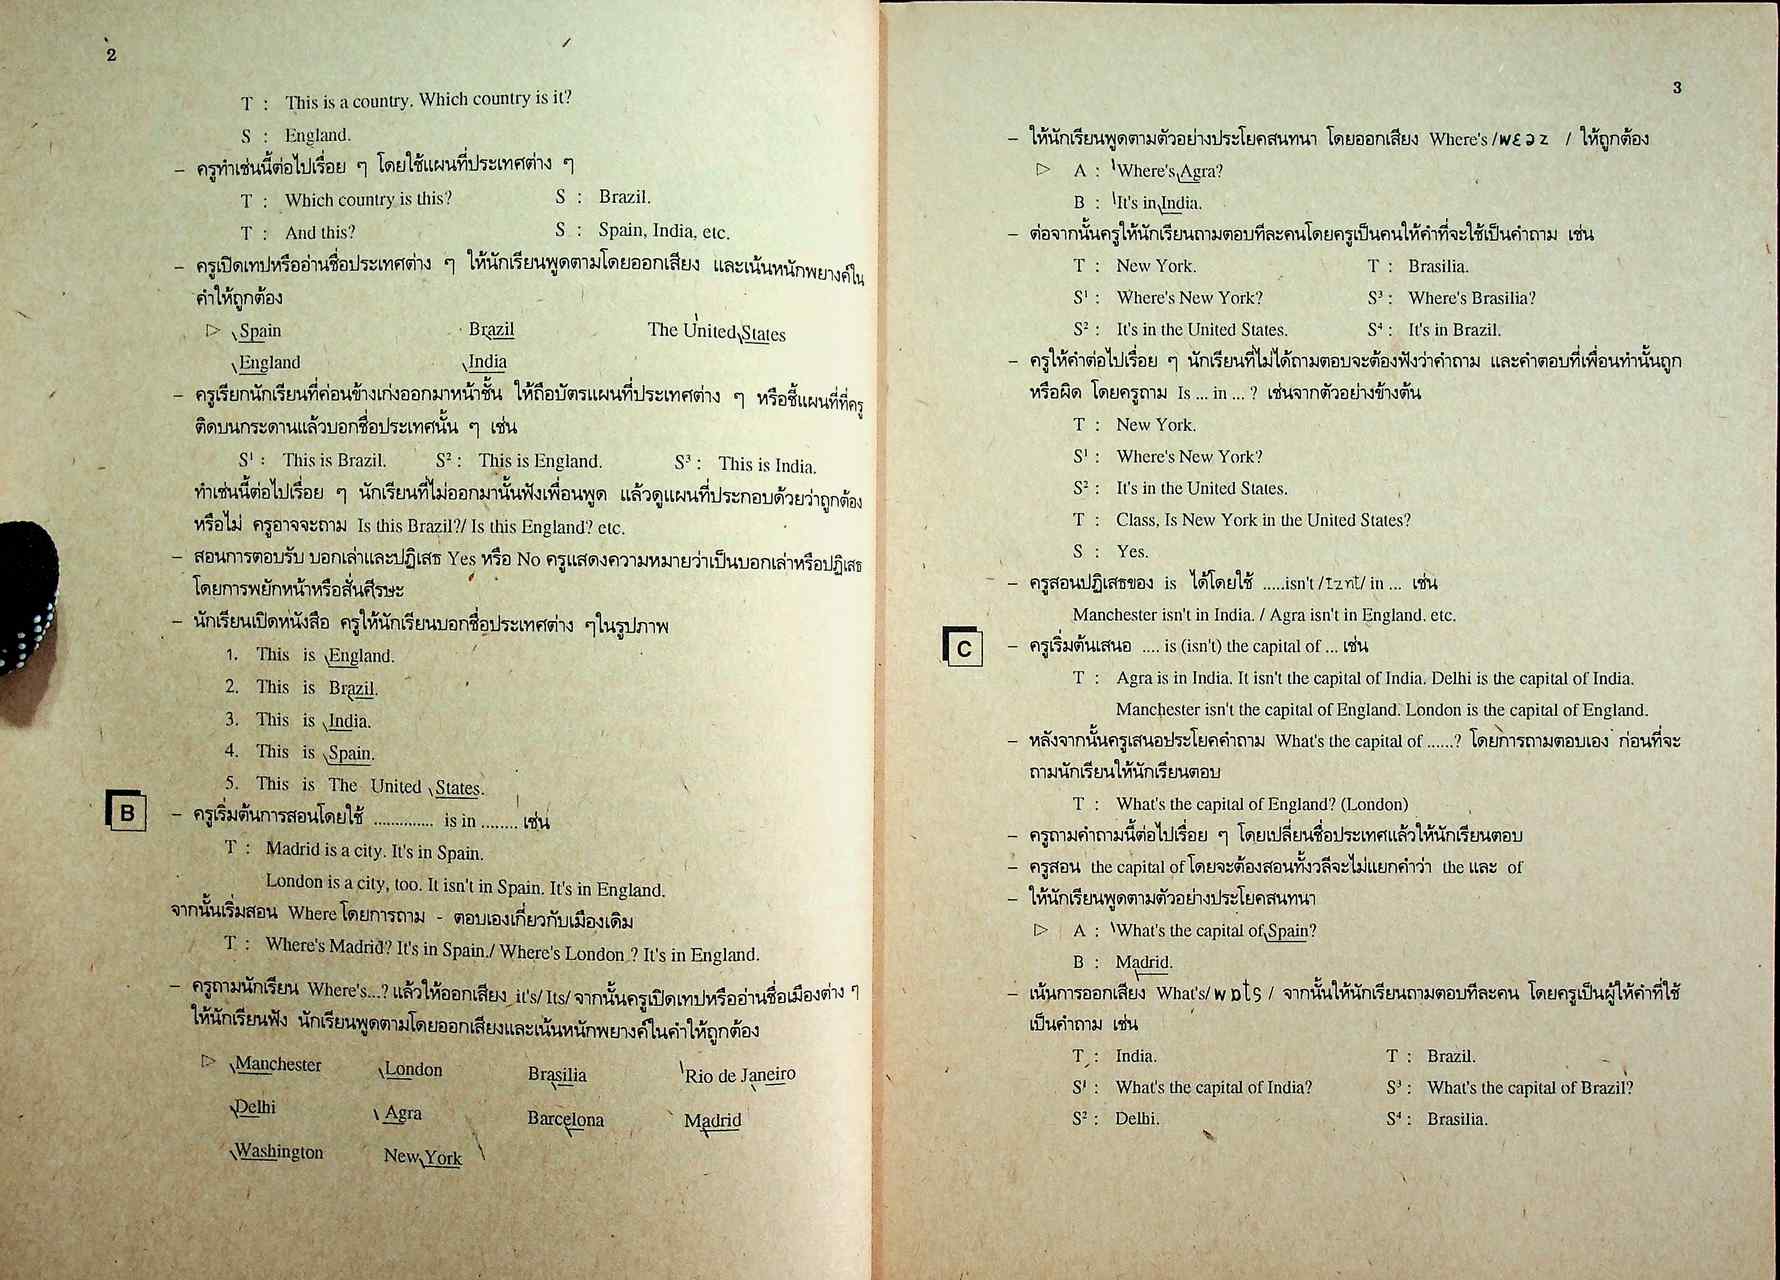 2
T : This is a country. Which country is it?
S : England.
– ครูทำเช่นนี้ต่อไปเรื่อย ๆ โดยใช้แผนที่ประเทศต่าง ๆ
T : Which country is this? S : Brazil.
T : And this? S : Spain, India, etc.
– ครูเปิดเทปหรืออ่านชื่อประเทศต่าง ๆ ให้นักเรียนพูดตามโดยออกเสียง และเน้นหนักพยางค์ใน
คำให้ถูกต้อง
▷ Spain Brazil The United States
England India
– ครูเรียกนักเรียนที่ค่อนข้างเก่งออกมาหน้าชั้น ให้ถือบัตรแผนที่ประเทศต่าง ๆ หรือชี้แผนที่ที่ครู
ติดบนกระดานแล้วบอกชื่อประเทศนั้น ๆ เช่น
S¹ : This is Brazil. S² : This is England. S³ : This is India.
ทำเช่นนี้ต่อไปเรื่อย ๆ นักเรียนที่ไม่ออกมานั้นฟังเพื่อนพูด แล้วดูแผนที่ประกอบด้วยว่าถูกต้อง
หรือไม่ ครูอาจจะถาม Is this Brazil?/ Is this England? etc.
– สอนการตอบรับ บอกเล่าและปฏิเสธ Yes หรือ No ครูแสดงความหมายว่าเป็นบอกเล่าหรือปฏิเสธ
โดยการพยักหน้าหรือสั่นศีรษะ
– นักเรียนเปิดหนังสือ ครูให้นักเรียนบอกชื่อประเทศต่าง ๆในรูปภาพ
1. This is England.
2. This is Brazil.
3. This is India.
4. This is Spain.
5. This is The United States.
B – ครูเริ่มต้นการสอนโดยใช้ .............. is in ........ เช่น
T : Madrid is a city. It's in Spain.
London is a city, too. It isn't in Spain. It's in England.
จากนั้นเริ่มสอน Where โดยการถาม - ตอบเองเกี่ยวกับเมืองเดิม
T : Where's Madrid? It's in Spain./ Where's London ? It's in England.
– ครูถามนักเรียน Where's...? แล้วให้ออกเสียง it's/ Its/ จากนั้นครูเปิดเทปหรืออ่านชื่อเมืองต่าง ๆ
ให้นักเรียนฟัง นักเรียนพูดตามโดยออกเสียงและเน้นหนักพยางค์ในคำให้ถูกต้อง
▷ Manchester London Brasilia Rio de Janeiro
Delhi Agra Barcelona Madrid
Washington New York
3
– ให้นักเรียนพูดตามตัวอย่างประโยคสนทนา โดยออกเสียง Where's /wɛəz / ให้ถูกต้อง
▷ A : Where's Agra?
B : It's in India.
– ต่อจากนั้นครูให้นักเรียนถามตอบทีละคนโดยครูเป็นคนให้คำที่จะใช้เป็นคำถาม เช่น
T : New York. T : Brasilia.
S¹ : Where's New York? S³ : Where's Brasilia?
S² : It's in the United States. S⁴ : It's in Brazil.
– ครูให้คำต่อไปเรื่อย ๆ นักเรียนที่ไม่ได้ถามตอบจะต้องฟังว่าคำถาม และคำตอบที่เพื่อนทำนั้นถูก
หรือผิด โดยครูถาม Is ... in ... ? เช่นจากตัวอย่างข้างต้น
T : New York.
S¹ : Where's New York?
S² : It's in the United States.
T : Class, Is New York in the United States?
S : Yes.
– ครูสอนปฏิเสธของ is ได้โดยใช้ .....isn't /Iznt/ in ... เช่น
Manchester isn't in India. / Agra isn't in England. etc.
C – ครูเริ่มต้นเสนอ .... is (isn't) the capital of ... เช่น
T : Agra is in India. It isn't the capital of India. Delhi is the capital of India.
Manchester isn't the capital of England. London is the capital of England.
– หลังจากนั้นครูเสนอประโยคคำถาม What's the capital of ......? โดยการถามตอบเอง ก่อนที่จะ
ถามนักเรียนให้นักเรียนตอบ
T : What's the capital of England? (London)
– ครูถามคำถามนี้ต่อไปเรื่อย ๆ โดยเปลี่ยนชื่อประเทศแล้วให้นักเรียนตอบ
– ครูสอน the capital of โดยจะต้องสอนทั้งวลีจะไม่แยกคำว่า the และ of
– ให้นักเรียนพูดตามตัวอย่างประโยคสนทนา
▷ A : What's the capital of Spain?
B : Madrid.
– เน้นการออกเสียง What's/wɒts / จากนั้นให้นักเรียนถามตอบทีละคน โดยครูเป็นผู้ให้คำที่ใช้
เป็นคำถาม เช่น
T : India. T : Brazil.
S¹ : What's the capital of India? S³ : What's the capital of Brazil?
S² : Delhi. S⁴ : Brasilia.